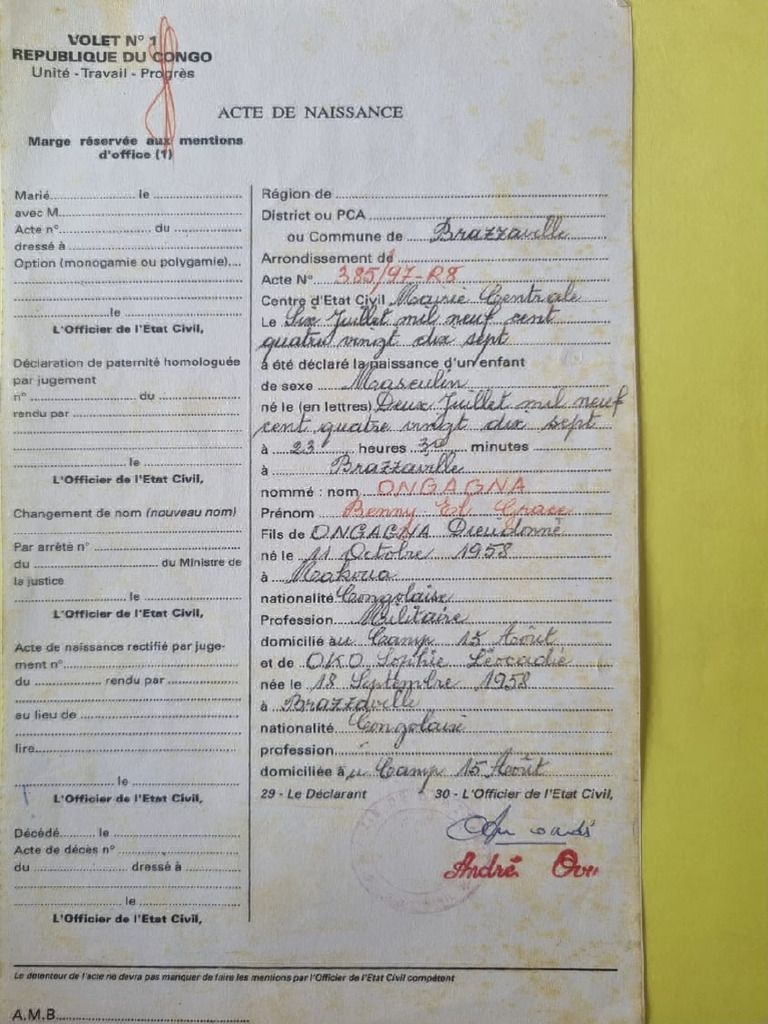 VOLET N° 1
REPUBLIQUE DU CONGO
Unité - Travail - Progrès
ACTE DE NAISSANCE
Marge réservée aux mentions
d'office (1)
Marié.......... le ..........
avec M..........
Acte n°.......... du ..........
dressé à ..........
Option (monogamie ou polygamie)....
.......... le ..........
L'Officier de l'Etat Civil,
Déclaration de paternité homologuée
par jugement
n° .......... du ..........
rendu par ..........
.......... le ..........
L'Officier de l'Etat Civil,
Changement de nom (nouveau nom)
Par arrêté n° ..........
du .......... du Ministre de
la justice
.......... le ..........
L'Officier de l'Etat Civil,
Acte de naissance rectifié par juge-
ment n°..........
du .......... rendu par ..........
au lieu de ..........
lire..........
.......... le ..........
L'Officier de l'Etat Civil,
Décédé.......... le ..........
Acte de décès n° ..........
du .......... dressé à ..........
.......... le ..........
L'Officier de l'Etat Civil,
Région de ..........
District ou PCA ..........
ou Commune de Brazzaville
Arrondissement de ..........
Acte N° 385/97-R8
Centre d'Etat Civil Mairie Centrale
Le Six Juillet mil neuf cent
quatre vingt dix sept
a été déclaré la naissance d'un enfant
de sexe Masculin
né le (en lettres) Deux Juillet mil neuf
cent quatre vingt dix sept
à 23 heures 30 minutes
à Brazzaville
nommé : nom ONGAGNA
Prénom Benny El Grace
Fils de ONGAGNA Dieudonné
né le 11 Octobre 1958
à Makoua
nationalité Congolaise
Profession Militaire
domicilié au Camp 15 Août
et de OKO Sophie Léocadie
née le 18 Septembre 1958
à Brazzaville
nationalité Congolaise
profession..........
domiciliée à u Camp 15 Août
29 - Le Déclarant 30 - L'Officier de l'Etat Civil,
André
Le détenteur de l'acte ne devra pas manquer de faire les mentions par l'Officier de l'Etat Civil compétent
A.M.B..........